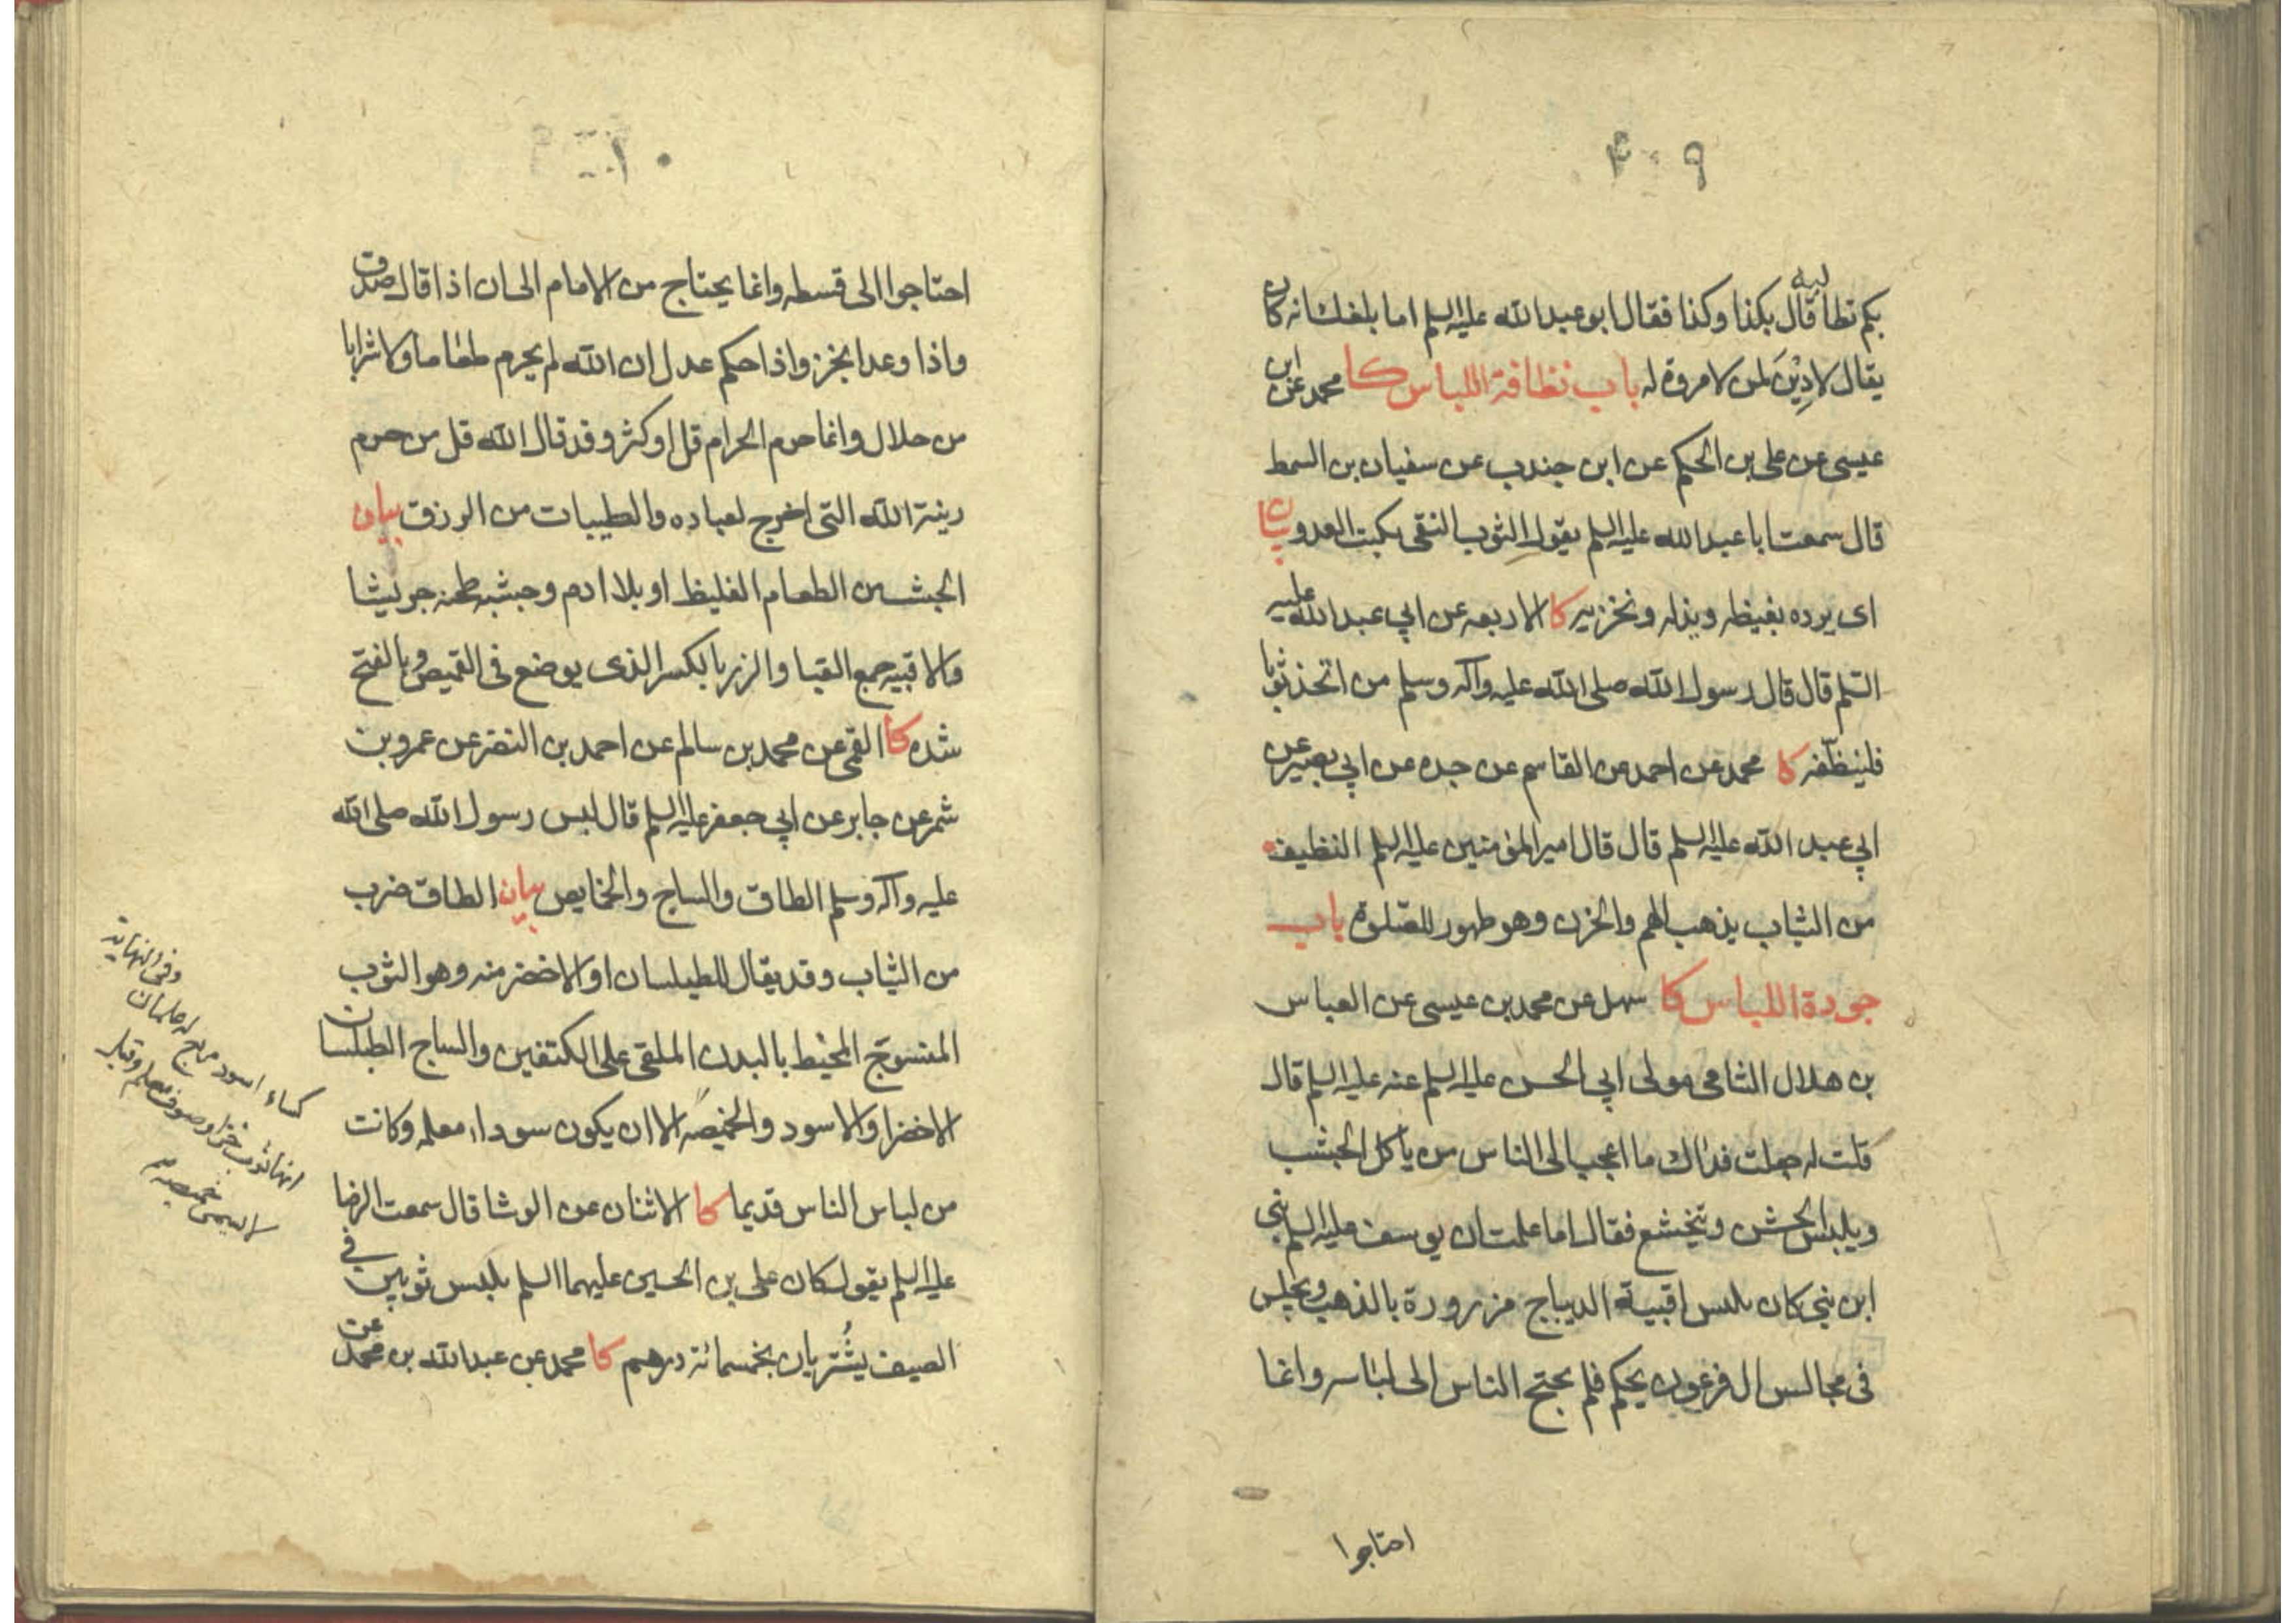 ۹۰۴
بكم تطالبه قال بكذا وكذا فقال ابو عبد الله عليه السلم اما بلغك انه كان
يقال لا دِيْنَ لمن لا مروة له باب نظافة اللباس كا محمد عن ابن
عيسى عن على بن الحكم عن ابن جندب عن سفيان بن السمط
قال سمعت ابا عبد الله عليه السلم يقول الثوب النقى يكبت العدو بيان
اى يرده بغيظه ويذله ويخزيه كا الاربعه عن ابي عبد الله عليه
السّلم قال قال رسول الله صلى الله عليه وآله وسلم من اتخذ ثوبا
فلينظّفه كا محمد عن احمد عن القاسم عن جده عن ابي بصير عن
ابي عبد الله عليه السلم قال قال امير المؤمنين عليه السلم النظيف
من الثياب يذهب الهم والحزن وهو طهور للصّلوة باب
جودة اللباس كا سهل عن محمد بن عيسى عن العباس
بن هلال الشامى مولى ابي الحسن عليه السلم عنه عليه السلم قال
قلت له جعلت فداك ما اعجب الى الناس من ياكل الجشب
ويلبس الخشن ويتخشع فقال اما علمت ان يوسف عليه السلم نبى
ابن نبى كان يلبس اقبية الديباج مزرورة بالذهب ويجلس
فى مجالس ال فرعون يحكم فلم يحتج الناس الى لباسه وانما
احتاجوا
احتاجوا الى قسطه وانما يحتاج من الامام الى ان اذا قال صدق
واذا وعد انجز واذا حكم عدل ان الله لم يحرم طعاما ولا شرابا
من حلال وانما حرم الحرام قل او كثر وقد قال الله قل من حرم
زينة الله التى اخرج لعباده والطيبات من الرزق بيان
الجشب من الطعام الغليظ او بلا ادم وجشبه طحنه جريشا
والاقبيه جمع القبا والزر بالكسر الذى يوضع فى القميص وبالفتح
شده كا القمى عن محمد بن سالم عن احمد بن النضر عن عمرو بن
شمر عن جابر عن ابي جعفر عليه السلم قال لبس رسول الله صلى الله
عليه وآله وسلم الطاق والساج والخمايص بيان الطاق ضرب
من الثياب وقد يقال للطيلسان او الاخضر منه وهو الثوب
المنسوج المحيط بالبدن الملقى على الكتفين والساج الطيلسان
الاخضر او الاسود والخميصه الا ان يكون سوداء معلمه وكانت
من لباس الناس قديما كا الاثنان عن الوشا قال سمعت الرضا
عليه السلم يقول كان على بن الحسين عليهما السلم يلبس ثوبين فى
الصيف يُشتريان بخمسمائة درهم كا محمد عن عبد الله بن محمد عن
وفى النهايه
كساء اسود مربع له علمان
انها ثوب خز او صوف معلم وقيل
لا يسمى خميصه